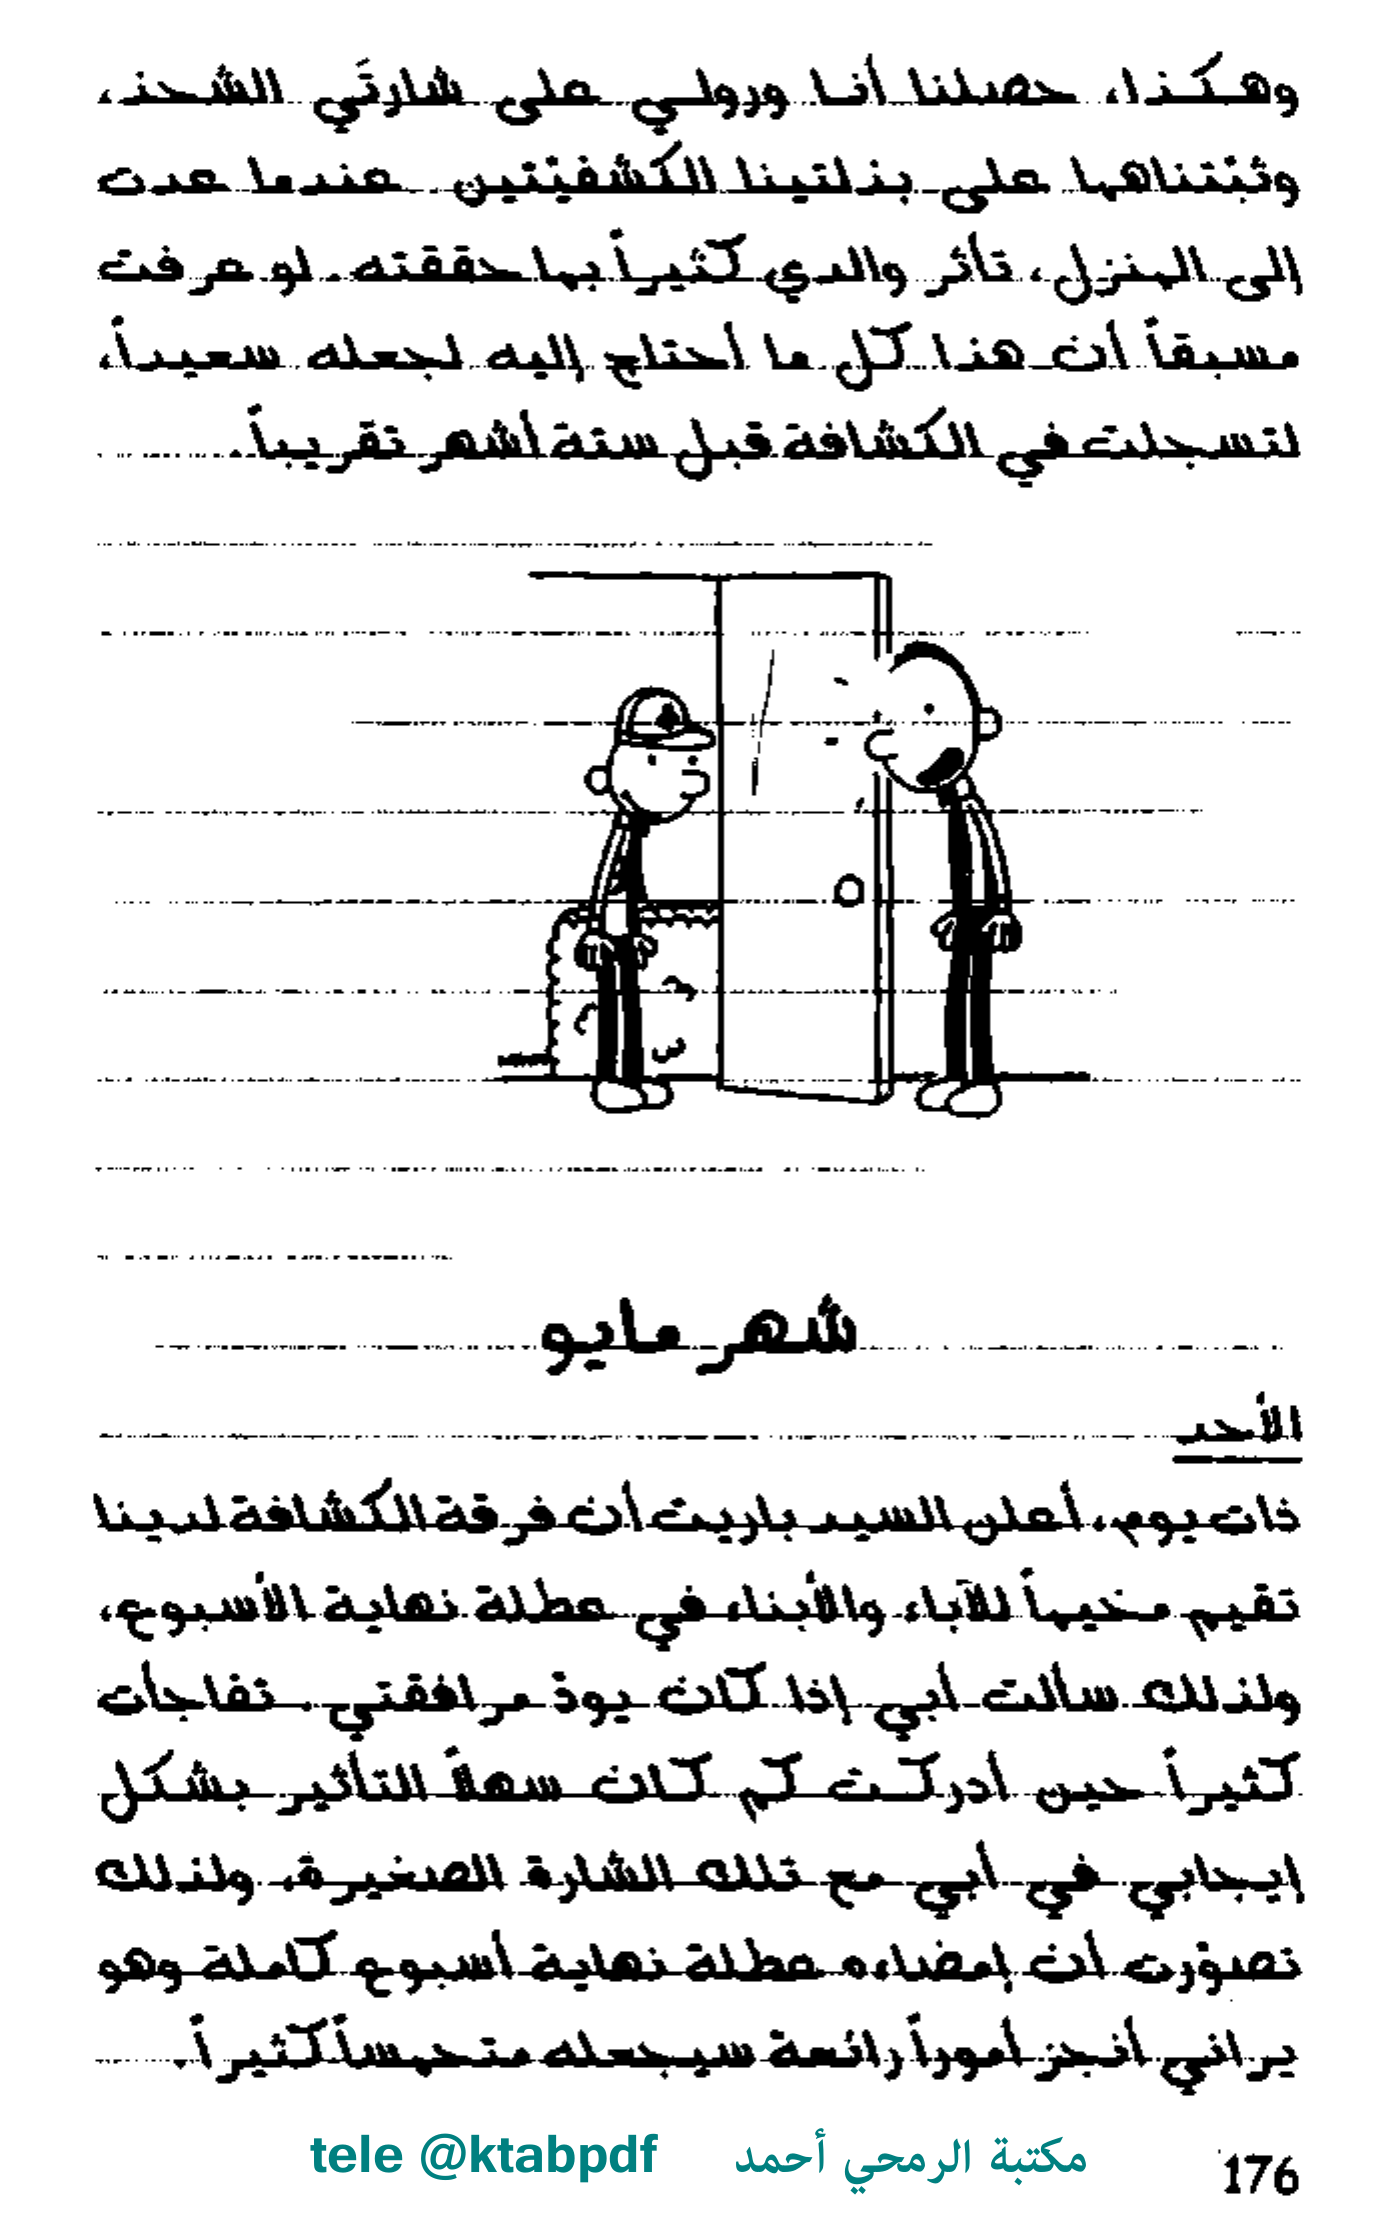 وهكذا، حصلنا أنا ورولي على شارتَي الشحذ،
وثبّتناهما على بذلتينا الكشفيّتين. عندما عدت
إلى المنزل، تأثر والدي كثيراً بما حققته. لو عرفت
مسبقاً أن هذا كل ما أحتاج إليه لجعله سعيداً،
لتسجلت في الكشافة قبل ستة أشهر تقريباً.
شهر مايو
الأحد
ذات يوم، أعلن السيد باريت أن فرقة الكشافة لدينا
تقيم مخيماً للآباء والأبناء في عطلة نهاية الأسبوع،
ولذلك سألت أبي إذا كان يودّ مرافقتي. تفاجأت
كثيراً حين أدركت كم كان سهلاً التأثير بشكل
إيجابي في أبي مع تلك الشارة الصغيرة، ولذلك
تصوّرت أن إمضاءه عطلة نهاية أسبوع كاملة وهو
يراني أنجز أموراً رائعة سيجعله متحمساً كثيراً.
tele @ktabpdf مكتبة الرمحي أحمد
176